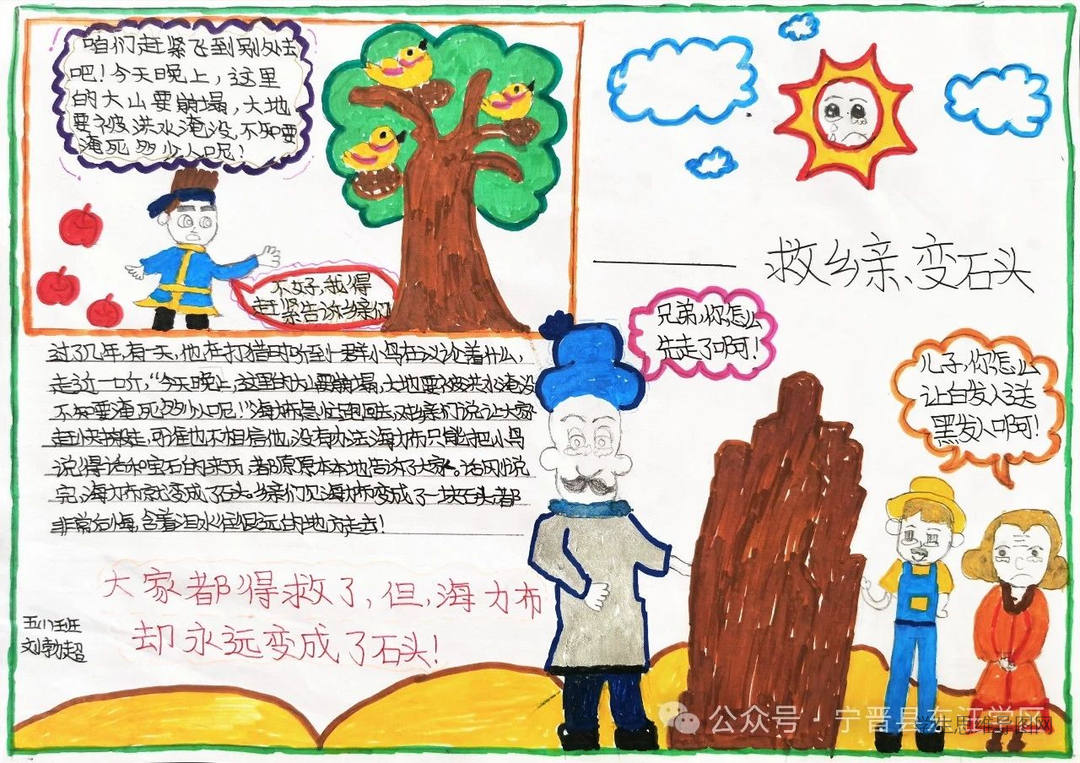 咱们赶紧飞到别处去
吧！今天晚上，这里
的大山要崩塌，大地
要被洪水淹没，不知要
淹死多少人呢！
不好，我得
赶紧告诉乡亲们
——救乡亲、变石头
兄弟，你怎么
先走了啊！
儿子，你怎么
让白发人送
黑发人啊！
过了几年，有一天，他在打猎时听到一群小鸟在议论着什么，
走近一听，“今天晚上，这里的大山要崩塌，大地要被洪水淹没
不知要淹死多少人呢！”海力布急忙跑回去，对乡亲们说让大家
赶快搬走，可谁也不相信他，没有办法海力布只能把小鸟
说得话和宝石的来历，都原原本本地告诉了大家。话刚说
完，海力布就变成了石头。乡亲们见海力布变成了一块石头都
非常后悔，含着泪水往很远的地方走去！
大家都得救了，但，海力布
却永远变成了石头！
五(1)班
刘勃超
公众号·宁晋县东汪学区
学生思维导图网